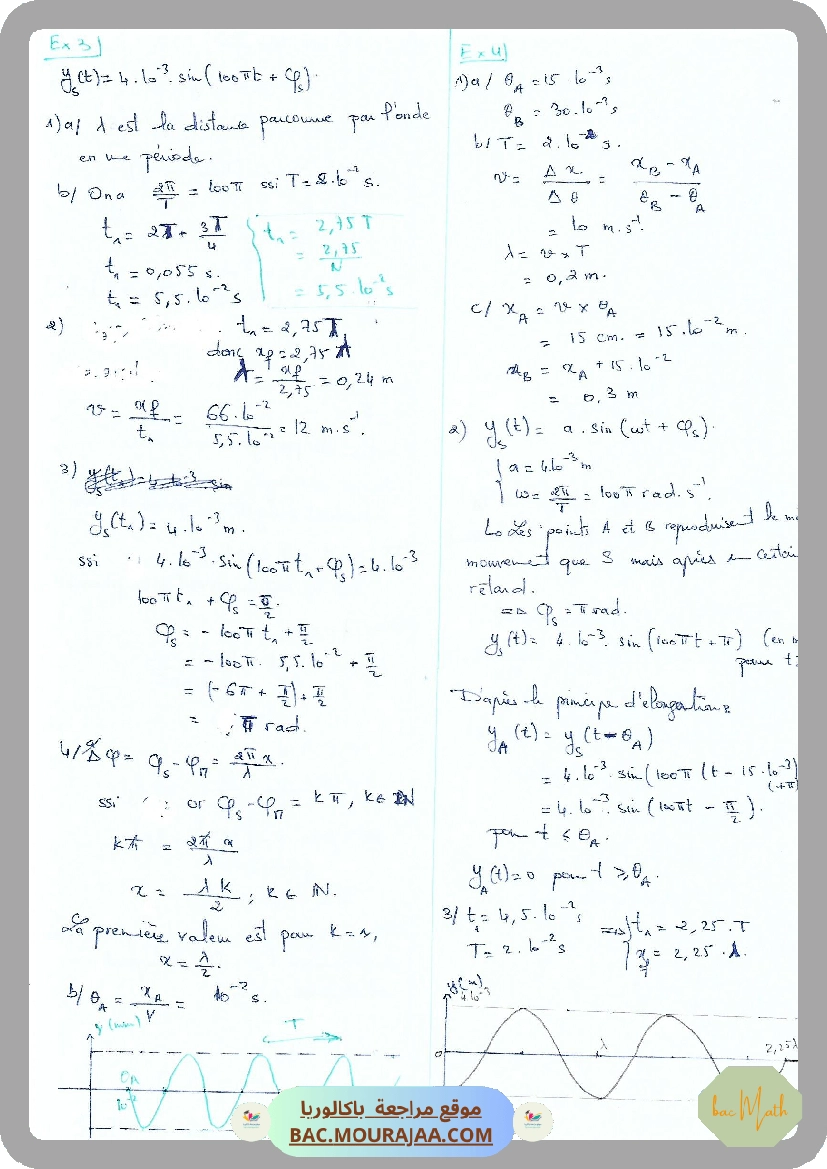 Ex 3)
y_s(t) = 4.10⁻³. sin(100πt + φ_s).
1) a/ λ est la distance parcourue par l'onde
en une période.
b/ On a 2π/T = 100π ssi T = 2.10⁻² s.
t₁ = 2T + 3T/4
t₁ = 0,055 s.
t₁ = 5,5.10⁻² s
t₁ = 2,75 T
= 2,75/N
= 5,5.10⁻² s
2) t₁ = 2,75 T,
donc xf = 2,75 λ
λ = xf/2,75 = 0,24 m
v = xf/t₁ = 66.10⁻²/5,5.10⁻² = 12 m.s⁻¹.
3)
y_s(t₁) = 4.10⁻³ m.
ssi 4.10⁻³. sin(100πt₁ + φ_s) = 4.10⁻³
100πt₁ + φ_s = π/2.
φ_s = - 100π t₁ + π/2
= - 100π. 5,5.10⁻² + π/2
= (- 6π + π/2) + π/2
= π rad.
4/ a/ Δφ = φ_s - φ_M = 2πx/λ.
ssi or φ_s - φ_M = kπ, k ∈ ℕ
kπ = 2πx/λ
x = λk/2 ; k ∈ ℕ.
La première valeur est pour k = 1,
x = λ/2.
b/ θ_A = x_A/V = 10⁻² s.
y (mm)
T
θ_A
10⁻²
Ex 4)
1) a/ θ_A = 15.10⁻³ s
θ_B = 30.10⁻³ s
b/ T = 2.10⁻² s.
v = Δx/Δθ = (x_B - x_A)/(θ_B - θ_A)
= 10 m.s⁻¹.
λ = v × T
= 0,2 m.
c/ x_A = v × θ_A
= 15 cm. = 15.10⁻² m.
x_B = x_A + 15.10⁻²
= 0,3 m
2) y_s(t) = a. sin(ωt + φ_s).
a = 4.10⁻³ m
ω = 2π/T = 100π rad.s⁻¹.
Les points A et B reproduisent le m
mouvement que S mais après un certain
retard.
⇒ φ_s = π rad.
y_s(t) = 4.10⁻³. sin(100πt + π) (en m
pour t
D'après le principe d'élongation:
y_A(t) = y_s(t - θ_A)
= 4.10⁻³. sin(100π(t - 15.10⁻³)
(+π)
= 4.10⁻³. sin(100πt - π/2).
pour t ≤ θ_A.
y_A(t) = 0 pour t ≥ θ_A.
3/ t₁ = 4,5.10⁻² s ⇒ t₁ = 2,25.T
T = 2.10⁻² s x_f = 2,25.λ.
4.10⁻³
0
λ
2,25λ
موقع مراجعة باكالوريا
BAC.MOURAJAA.COM
bac Math